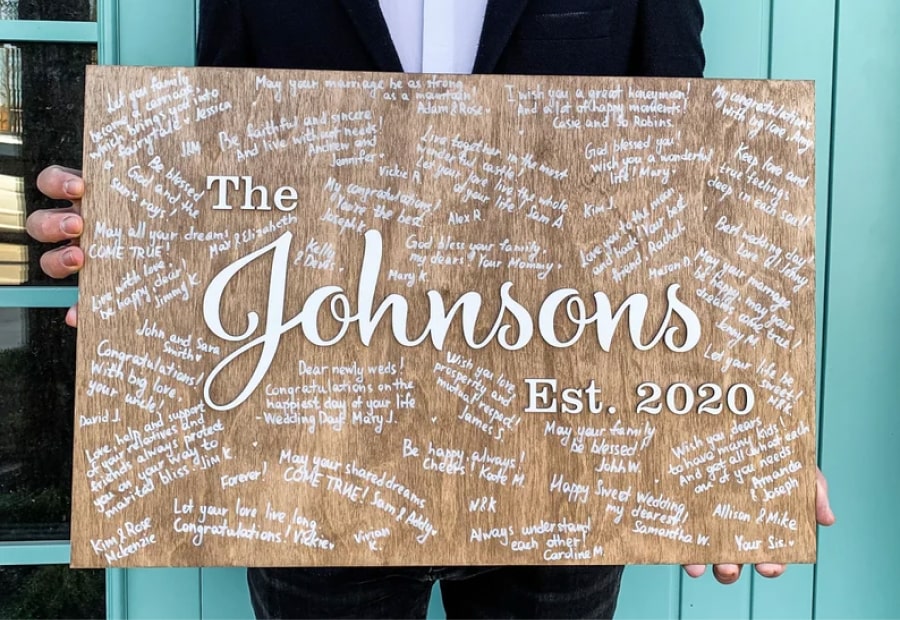 Let you family
become a carriage,
which brings you into
a fairy tale. Jessica
May your marriage be as strong
as a mountain!
Adam & Rose
I wish you a great honeymoon!
And a lot of happy moments!
Casie and So Robins.
My congratulations
with big love
IAN
Be faithful and sincere!
And live with not needs!
Andrew and
Jennifer
Love together in the most
wonderful castle!
Let your love live this whole
of your life! Sam A
Vickie R
God blessed you!
Wish you a wonderful
life! Mary
Keep love and
true feeling
deep in each soul!
Be blessed
God and the
suns rays!
The
My congratulations!
You're the bed
Joseph K
Alex R
Kim J.
May all your dreams
COME TRUE!
Max & Elizabeth
Kelly
& Denis.
God bless your family,
my dears! Your Mommy.
Mary K
Love you to the moon
and back! Your best
friend, Rachel
Mason D.
Best wedding day
Love
Johnsons
Live with love!
Be happy dear
Jimmy K
May your marriage
be happy, may your
dreams come true!
Jenny M
John and Sara
Smirth
Congratulations!
With big love,
your uncle!
Dear newly weds!
Congratulations on the
happiest day of your life
-Wedding Day! Mary J.
Wish you love,
prosperity and
mutual respect!
James S.
Let your life be
sweet!
Est. 2020
David J.
Love, help and support
of your relatives and
friends always protect
you on your way to
married bliss. Jim K
May your family
be blessed!
John W.
Wish you dears
to have many kids!
And get all what each
one of you needs!
Amanda
& Joseph
Be happy always!
Cheers! Kate M.
Forever!
May your shared dreams
COME TRUE! Sam & Addy
Happy Sweet Wedding
my dearest!
Samantha W.
N&K
Let your love live long
Congratulations! Vickie
Vivian
K.
Always understand
each other!
Caroline M.
Allison & Mike
Kim & Rose
Mckenzie
Your Sis.